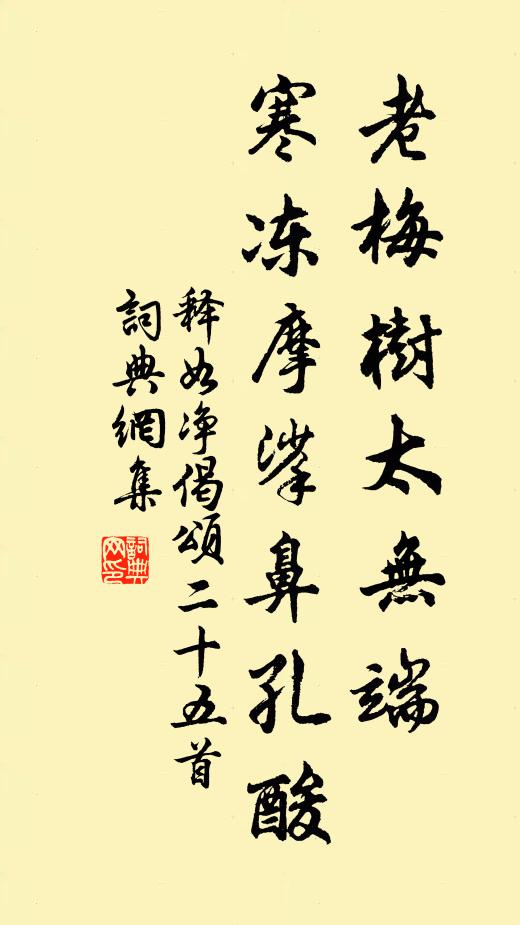 老梅樹太無端
寒冻摩挲鼻孔酸
释如净偈頌二十五首
詞典網集
詞典網印